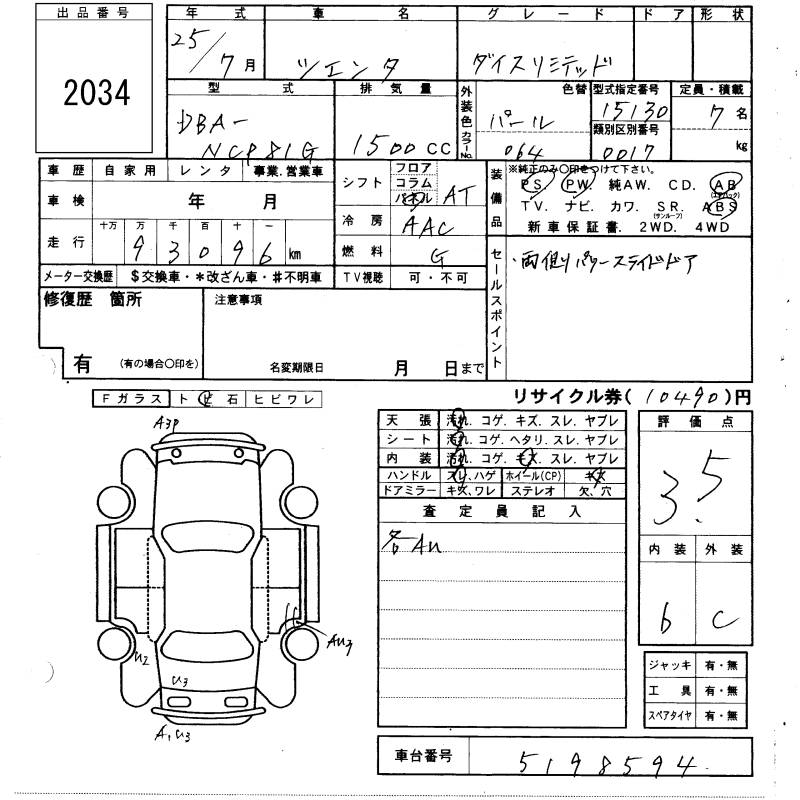 出品番号
2034
年式 車名 グレード ドア 形状
25/7月 ツエンタ ダイスリミテッド
型式 排気量 外装色 色替 型式指定番号 定員・積載
DBA-NCP81G 1500CC パール 15130 7名
カラーNo. 064 類別区別番号 0017 kg
車歴 自家用 レンタ 事業.営業車
車検 年 月
走行 十万 万 千 百 十 一
93096 km
メーター交換歴 $交換車・*改ざん車・#不明車
シフト フロア コラム パネル AT
冷房 AAC
燃料 G
TV視聴 可・不可
装備品 ※純正のみ〇印をつけて下さい。
PS. PW. 純AW. CD. AB(エアバック)
TV. ナビ. カワ. SR.(サンルーフ) ABS
新車保証書. 2WD. 4WD
セールスポイント
・両側パワースライドドア
修復歴 箇所
有 (有の場合〇印を)
注意事項
名変期限日 月 日まで
リサイクル券(10490)円
Fガラス トビ石 ヒビワレ
A3P
U2
U3
AU3
A1U3
天張 汚れ. コゲ. キズ. スレ. ヤブレ
シート 汚れ. コゲ. ヘタリ. スレ. ヤブレ
内装 汚れ. コゲ. キズ. スレ. ヤブレ
ハンドル スレ.ハゲ ホイール(CP) キズ
ドアミラー キズ.ワレ ステレオ 欠.穴
査定員記入
各AU
評価点
3.5
内装 外装
b C
ジャッキ 有・無
工具 有・無
スペアタイヤ 有・無
車台番号 5198594